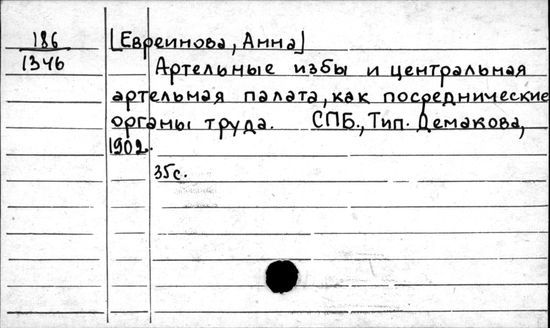 186
1346
[Евреинова, Анна]
Артельные избы и центральная
артельная палата, как посреднические
органы труда. СПБ., Тип. Демакова,
1902.
35с.